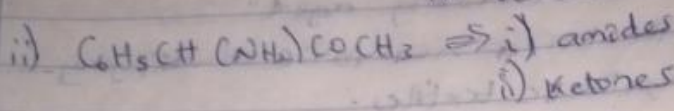 ii) C6H5CH(NH2)COCH3 => i) amides
ii) Ketones